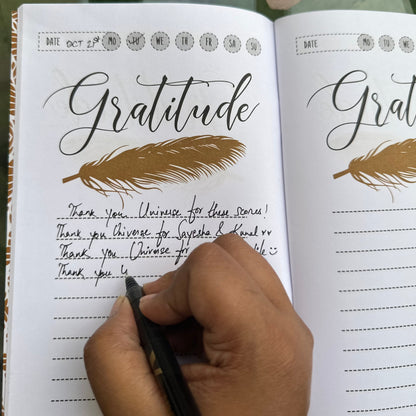 DATE OCT 21st MO TU WE TH FR SA SU
Gratitude
Thank you Universe for these scores!
Thank you Universe for Sayesha & Kunal
Thank you Universe for
Thank you U
DATE MO TU WE
Grat